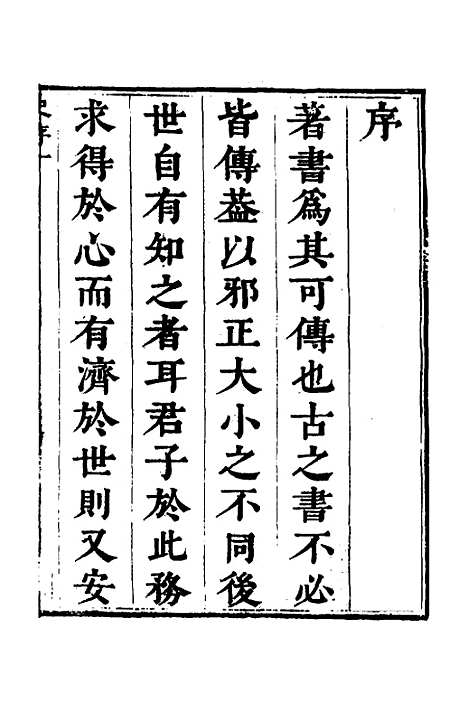 序
著書爲其可傳也古之書不必
皆傳葢以邪正大小之不同後
世自有知之者耳君子於此務
求得於心而有濟於世則又安